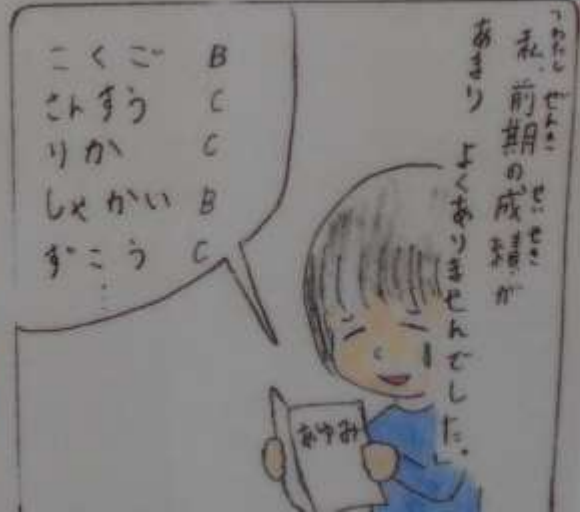 「私、前期の成績が
あまり よくありませんでした。」
こくご B
さんすう C
りか C
しゃかい B
ずこう C
⋮
あゆみ